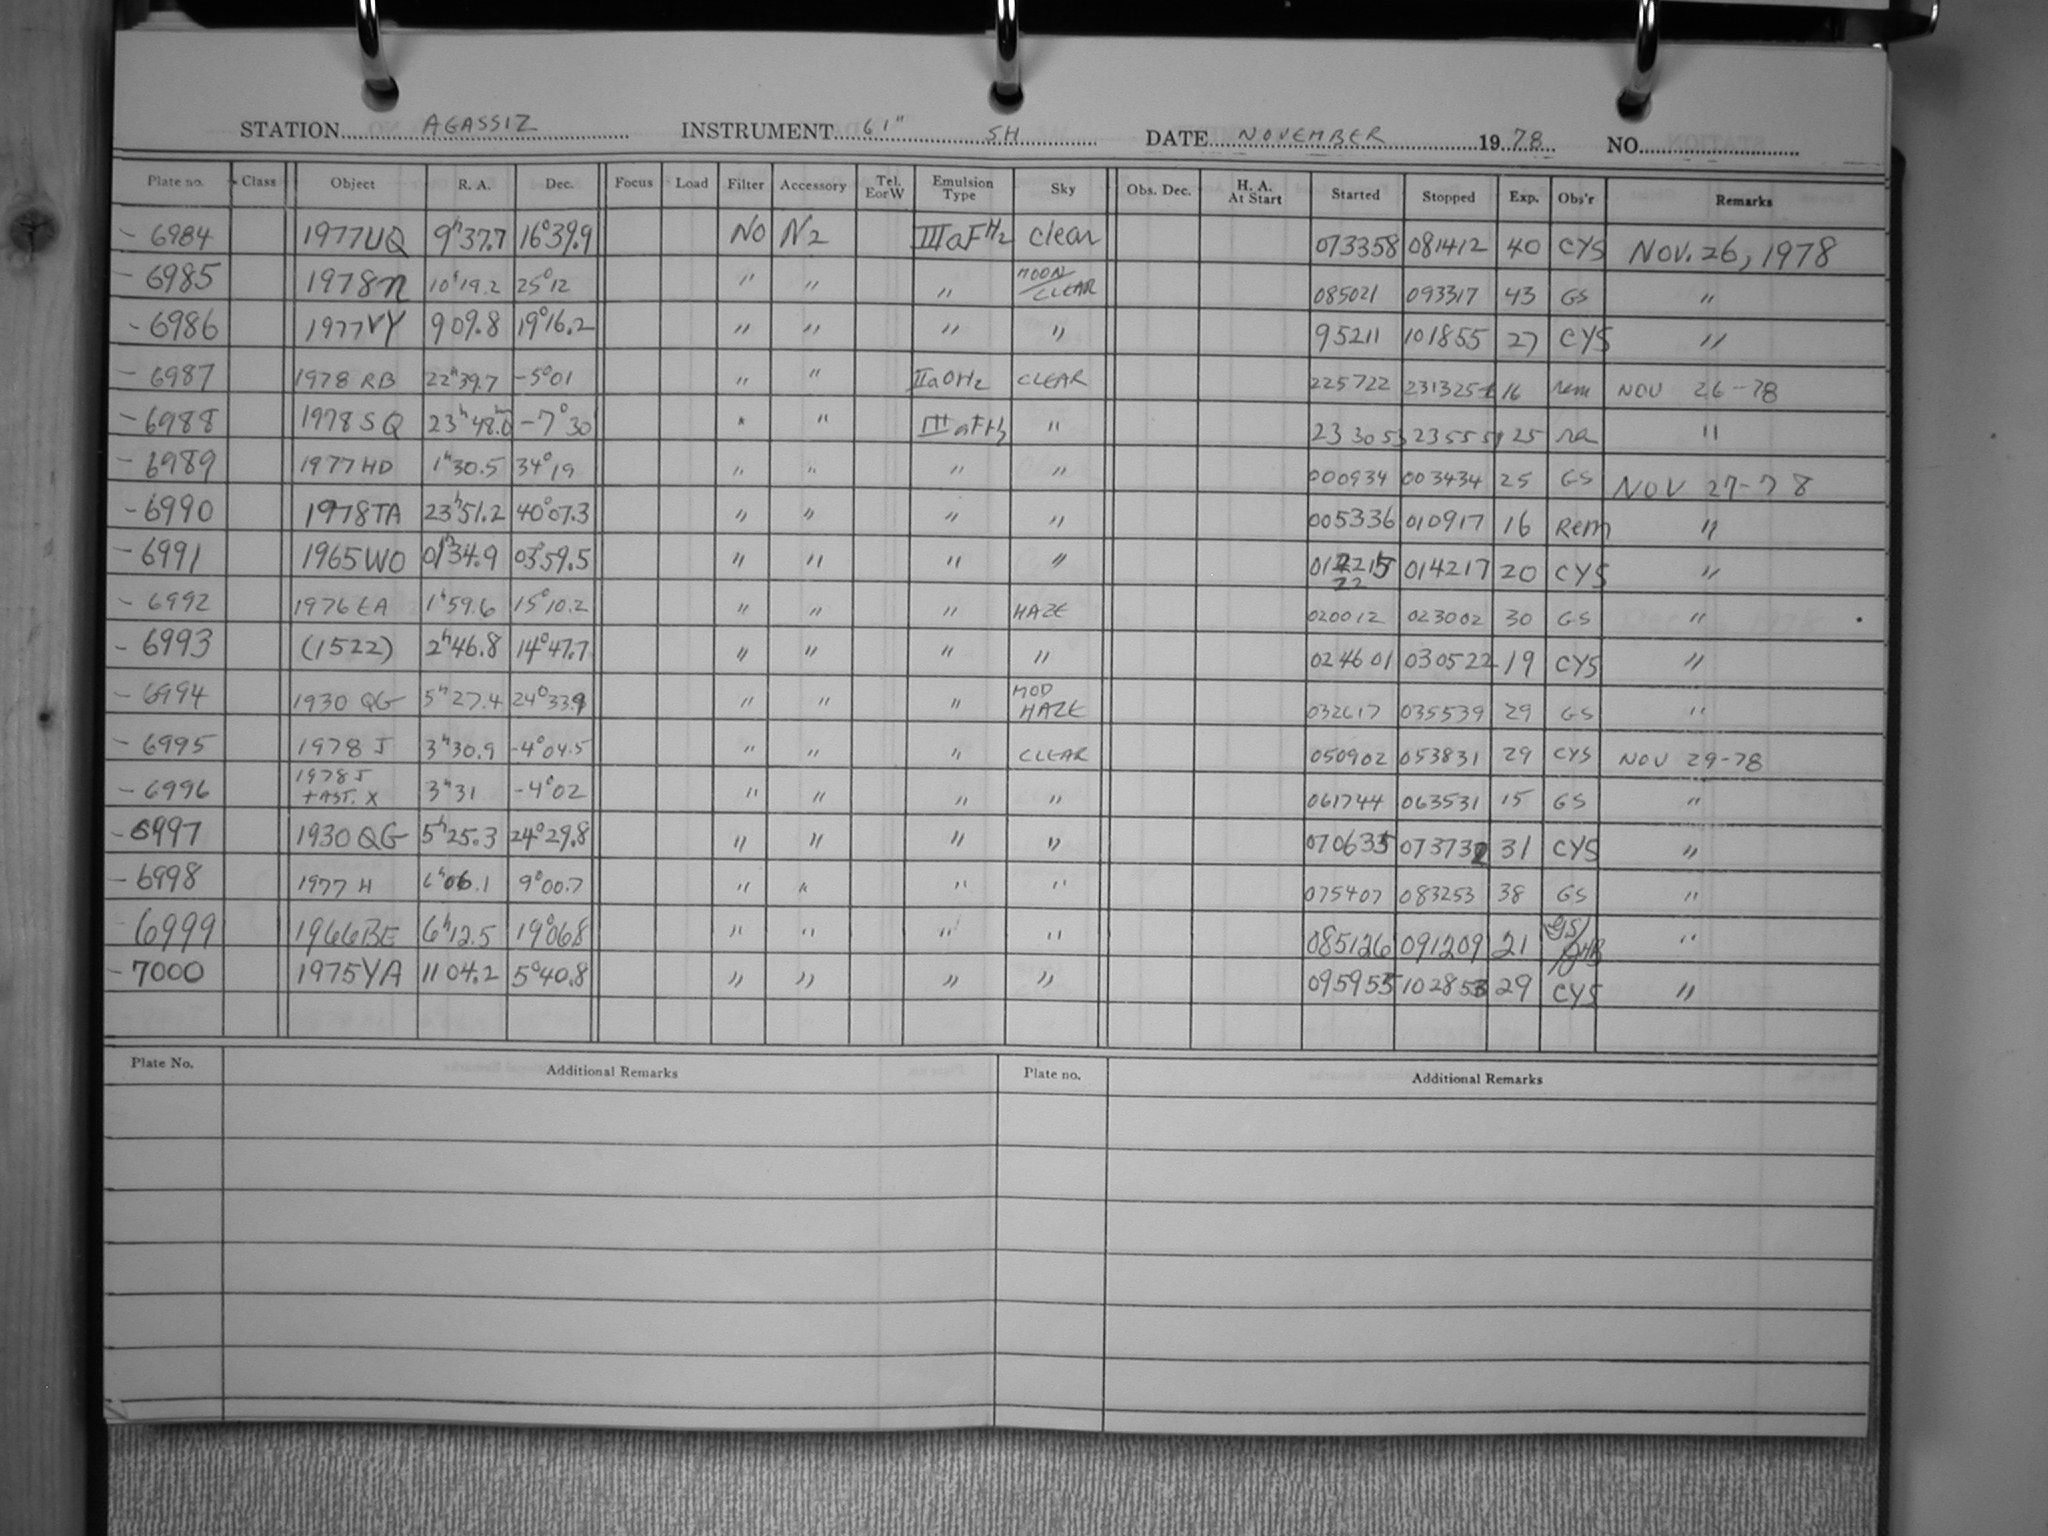 STATION AGASSIZ INSTRUMENT 61" SH DATE NOVEMBER 1978 NO.
Plate no. Class Object R. A. Dec. Focus Load Filter Accessory Tel. E or W Emulsion Type Sky Obs. Dec. H. A. At Start Started Stopped Exp. Obs'r Remarks
- 6984 1977UQ 9h37.7 16°39.9 No N2 IIIaFH2 clear 073358 081412 40 CYS Nov. 26, 1978
- 6985 1978n 10h19.2 25°12 " " " MOON/CLEAR 085021 093317 43 GS "
- 6986 1977VY 909.8 19°16.2 " " " " 95211 101855 27 CYS "
- 6987 1978 RB 22h39.7 -5°01 " " IIaOH2 CLEAR 225722 231325 16 rem NOV 26-78
- 6988 1978 SQ 23h48.0 -7°30 " " IIIaFH2 " 233053 235551 25 "
- 6989 1977 HD 1h30.5 34°19 " " " " 000934 003434 25 GS NOV 27-78
- 6990 1978TA 23h51.2 40°07.3 " " " " 005336 010917 16 Rem "
- 6991 1965WO 01h34.9 03°59.5 " " " " 012215 22 014217 20 CYS "
- 6992 1976 EA 1h59.6 15°10.2 " " " HAZE 020012 023002 30 GS "
- 6993 (1522) 2h46.8 14°47.7 " " " " 024601 030522 19 CYS "
- 6994 1930 QG 5h27.4 24°33.9 " " " MOD HAZE 032617 035539 29 GS "
- 6995 1978 J 3h30.9 -4°04.5 " " " CLEAR 050902 053831 29 CYS NOV 29-78
- 6996 1978 J + AST. X 3h31 -4°02 " " " " 061744 063531 15 GS "
- 6997 1930 QG 5h25.3 24°29.8 " " " " 070635 073732 31 CYS "
- 6998 1977 H 6h06.1 9°00.7 " " " " 075407 083253 38 GS "
- 6999 1966BE 6h12.5 19°06.8 " " " " 085126 091209 21 GS/ "
- 7000 1975YA 11 04.2 5°40.8 " " " " 095955 102853 29 CYS "
Plate No. Additional Remarks Plate no. Additional Remarks